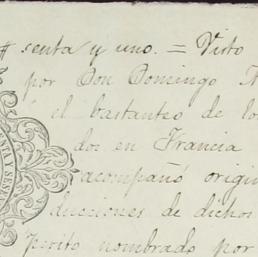 senta y uno. = Visto
por Don Domingo
el bastanteo de lo
dos en Francia
acompañó origin
ducciones de dichos
perito nombrado por